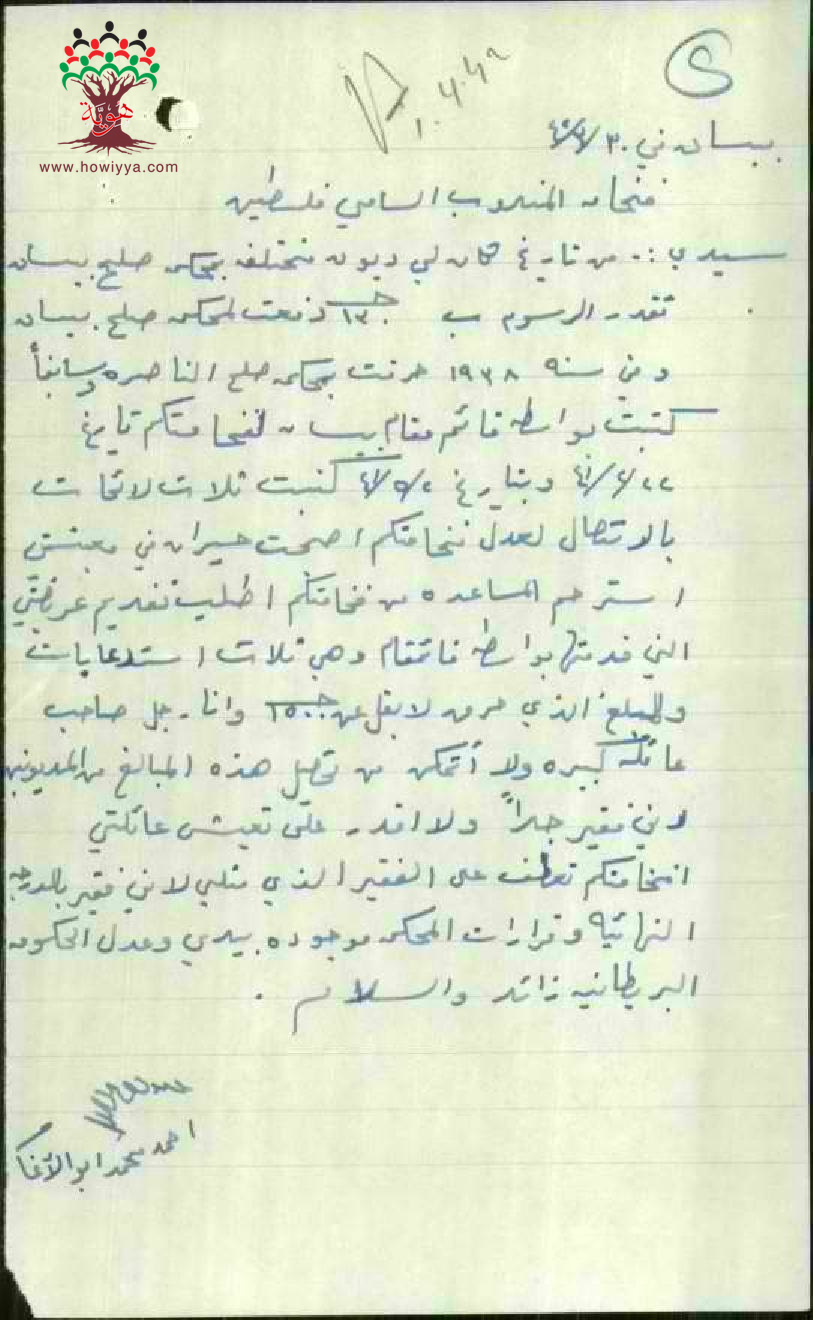 هوية
www.howiyya.com
بيسان في ٣٠
فخامة المندوب السامي فلسطين
سيدي :. من تاريخ كان لي ديون مختلفه بمحكمة صلح بيسان
تقدر الرسوم ب دفعت لمحكمة صلح بيسان
وفي سنه ١٩٣٨ حرقت بمحكمة صلح الناصره وسابقاً
كتبت بواسطة قائم مقام بيسان لفخامتكم تاريخ
وبتاريخ كتبت ثلاث لائحات
بالاتكال لعدل فخامتكم اصبحت حيران في معيشتي
استرحم المساعده من فخامتكم اطلب تقديم عريضتي
التي قدمتها بواسطة قائمقام وهي ثلاث استدعايات
والمبلغ الذي حرق لا يقل عن وانا رجل صاحب
عائلة كبيره ولا أتمكن من تحصيل هذه المبالغ من المديونين
لاني فقير جداً ولا اقدر على تعيش عائلتي
افخامتكم تعطف على الفقير الذي مثلي لاني فقير بالدرجه
النهائية وقرارات المحكمة موجوده بيدي وعدل الحكومه
البريطانيه زائد والسلام .
احمد محمد ابو الآغا